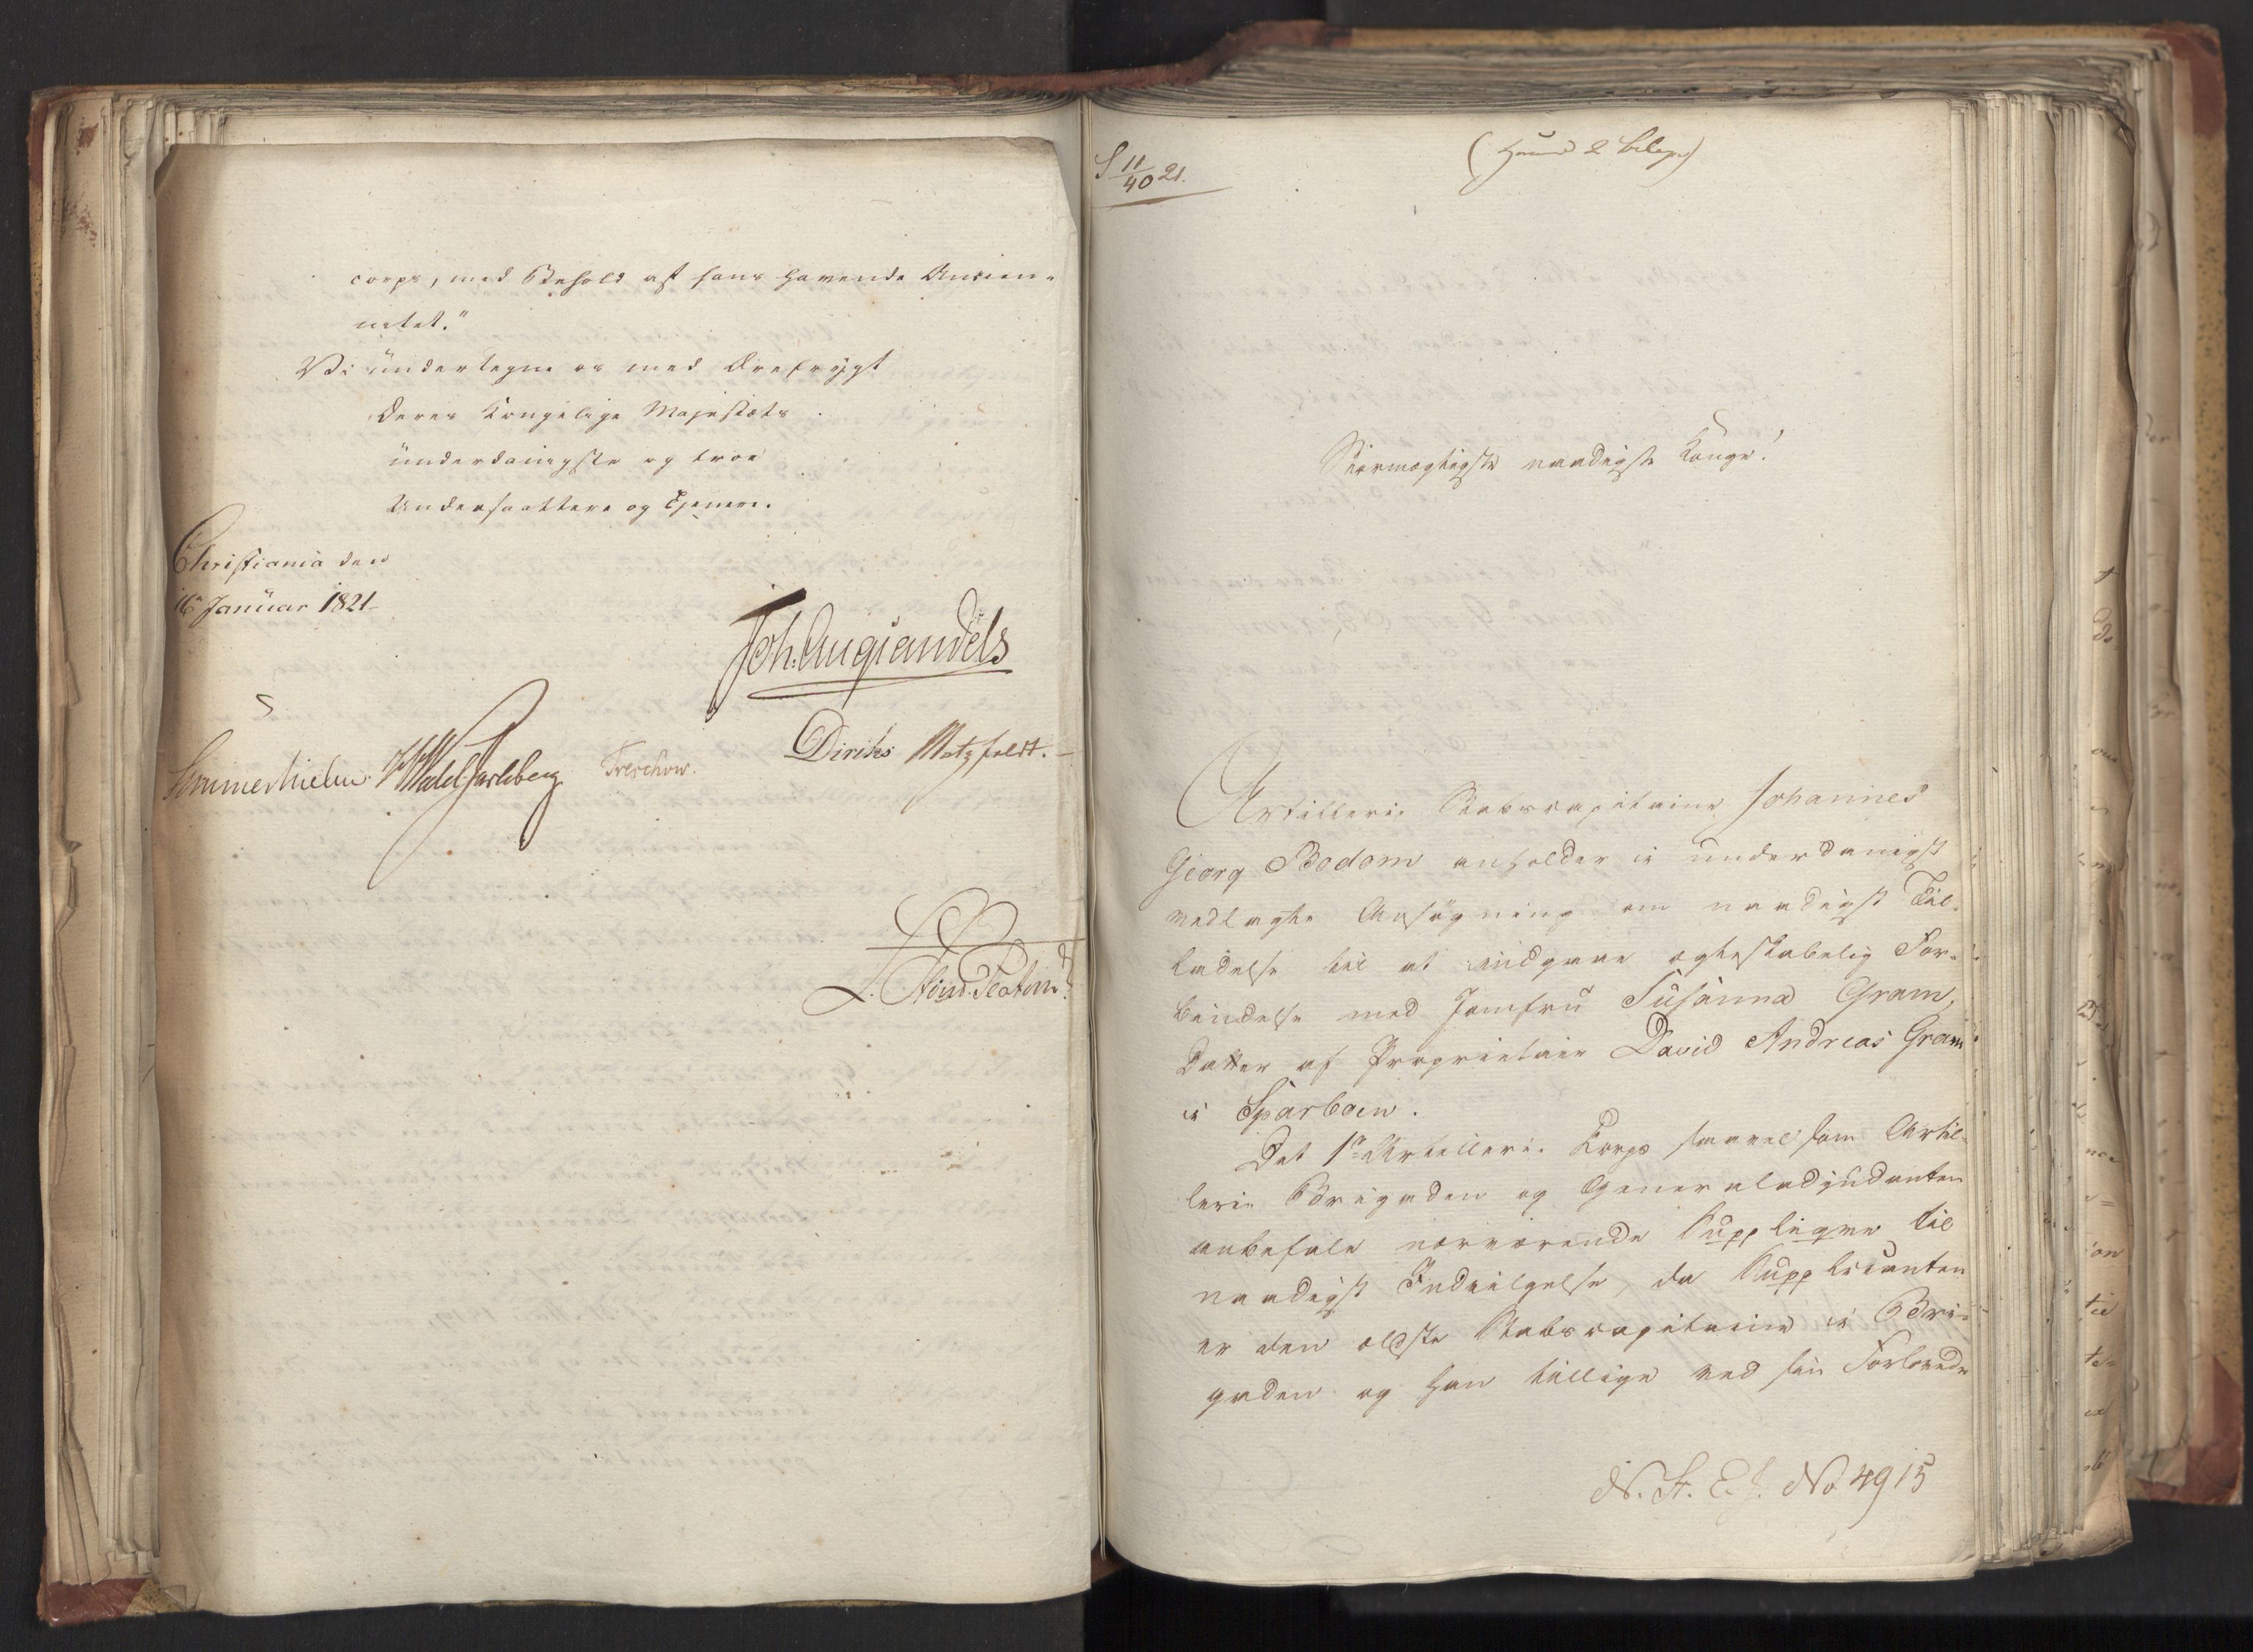 corps, med Behold af hans havende Ancien-
netet."
Vi undertegne os med Ærefrygt
Deres Kongelige Majestæts
underdanigste og troe
Undersaattere og Tjenere.
Christiania den
16 Januar 1821
Joh. Aug Sandels
Sommerhielm Wedel Jarlsberg Treschow. Diriks Motzfeldt.
S 11/40 21.
(Hermed 2 Bilage)
Stormægtigste naadigste Konge!
Artillerie Stabscapitaine Johannes
Georg Bodom anholder i underdanigst
vedlagte Ansøgning om naadigst Til-
ladelse til at indgaae ægteskabelig For-
bindelse med Jomfru Susanna Gram,
Datter af Proprietair David Andreas Gram
i Sparboen.
Det 1ste Artillerie Korps saavelsom Artil-
lerie Brigaden og Generaladjudanten
anbefale nærværende Supplique til
naadigst Indvilgelse, da Supplicanten
er den ældste Stabscapitaine i Bri-
gaden og han tillige ved sin Forlovede
N. St. E. J. No 4915